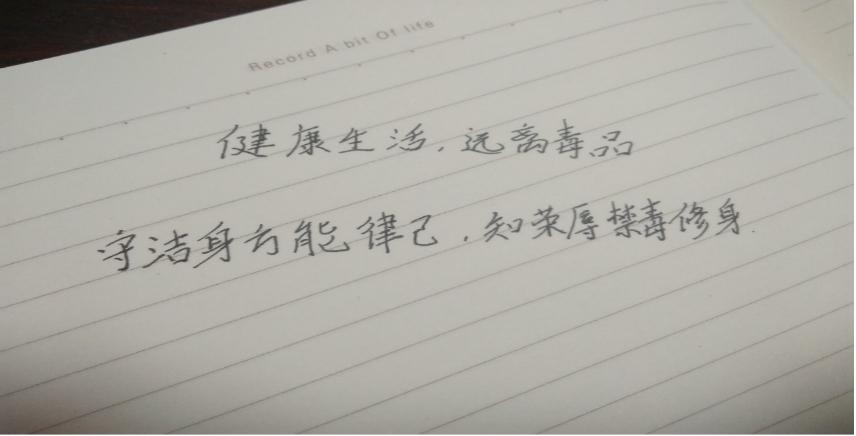 Record A bit Of life
健康生活，远离毒品
守洁身方能律己，知荣辱禁毒修身.